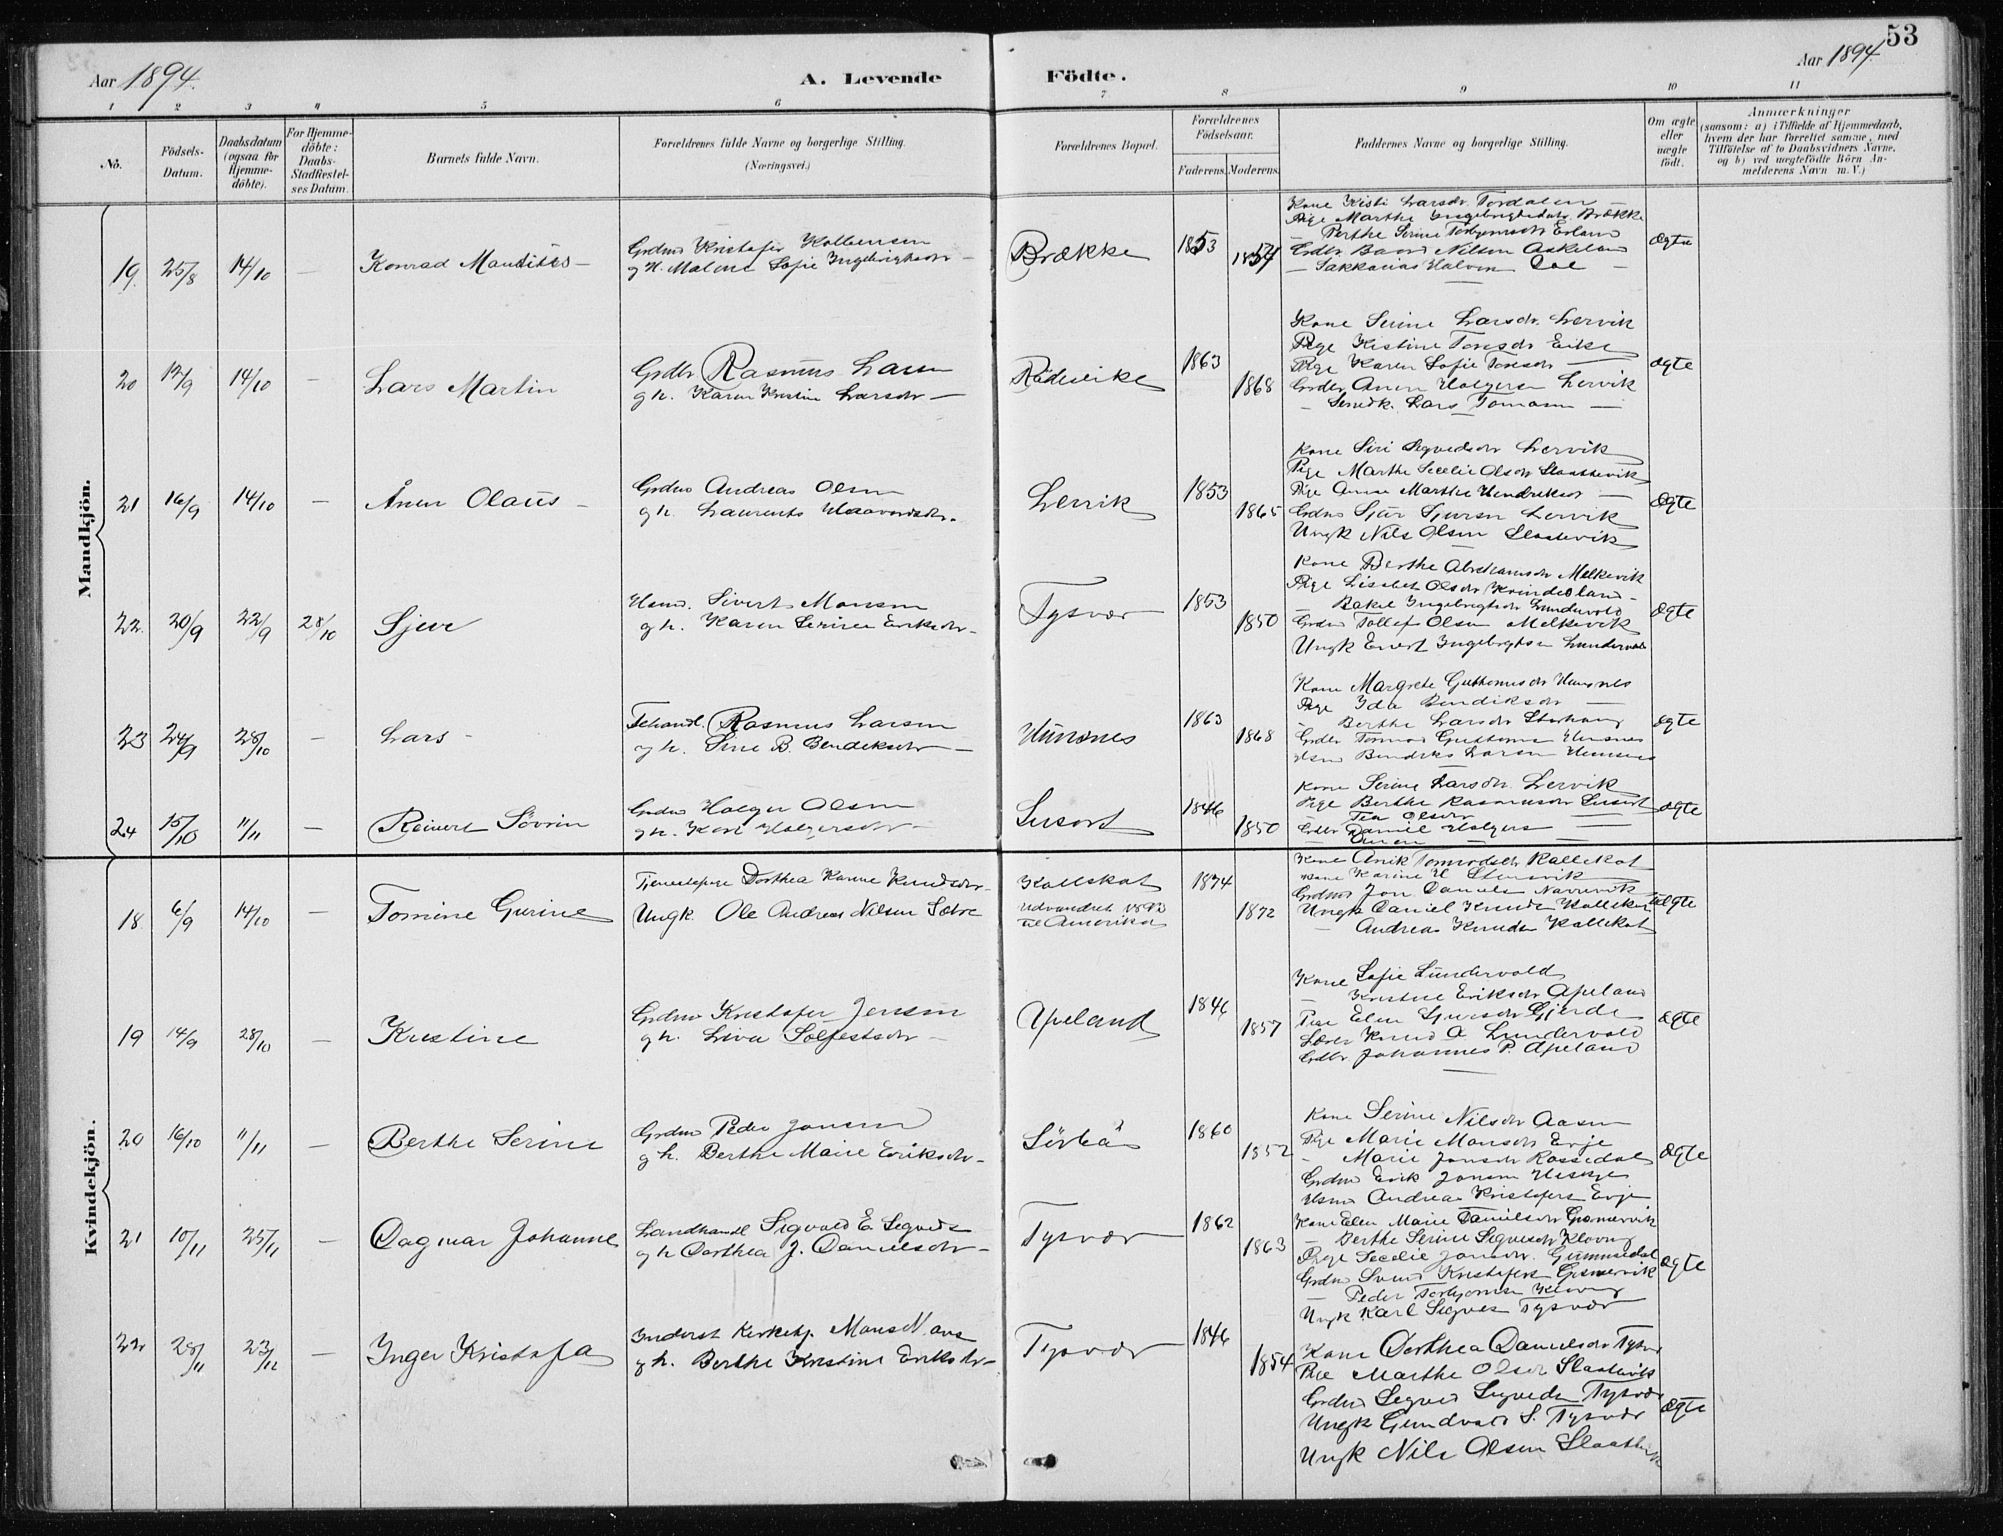 53
Aar 1894.
A. Levende
Födte.
Aar 1894.
1
2
3
4
5
6
7
8
9
10
11
No.
Födsels-
Datum.
Daabsdatum
(ogsaa for
Hjemme-
döbte).
For Hjemme-
döbte:
Daabs-
Stadfæstel-
ses Datum.
Barnets fulde Navn.
Forældrenes fulde Navne og borgerlige Stilling.
(Næringsvei.)
Forældrenes Bopæl.
Forældrenes
Födselsaar.
Faderens.
Moderens.
Faddernes Navne og borgerlige Stilling.
Om ægte
eller
uægte
födt.
Anmærkninger
(saasom: a) i Tilfælde af Hjemmedaab,
hvem der har forrettet samme, med
Tilföielse af to Daabsvidners Navne,
og b) ved uægtefödte Börn An-
melderens Navn m. V.)
Mandkjön.
19. 25/8 14/10 — Konrad
Grdm Kristofer
og H. Malene Sofie Ingebrigtsdr —
Brække
1853
1854
Kone Kisti Larsdr. Tordalen —
Pige Marthe Ingebrigtsdatr. Brække
— Berthe Serine
Grdbr. Baard Nilsen Askeland
— Sakkarias
Ægte
20 12/9 14/10 — Lars Martin
Grdbr. Rasmus Larsen
og h. Karen Kristine Larsdr —
1863
1868
Kone Serine Larsdr. Lervik
Pige Kistine Eike
Pige Karen Sofie
Grdbr. Anen Holgersen Lervik
— Lars
Ægte
21 16/9 14/10 — Ånen Olaus —
Grdm Andreas Olsen
og h. Laurentse
Lervik
1853
1865
Kone Siri Sigvedsdr Lervik
Pige Marthe Secelie Olsdr Slaattevik
Pige Anne Marthe Hendriksdr —
Grdm Sjur Sjursen Lervik
Ungk Nils Olsen Slaatevik
Ægte
22. 20/9 22/9 28/10 Sjur
Husm. Sivert Monsen
og h. Karen Serine Eriksdr —
Tysvær
1853
1850
Kone Berthe Abrahamsdr Melkevik
Pige Lisabet Olsdr
— Rakel Ingebrigtsdr Lundevold
Grdm Tollef Olsen Melkevik
Ungk Enert Ingebrigtsen Lundervold
Ægte
23 24/9 28/10 — Lars —
Rasmus Larsen
og h. Sine B. Bendiksdr —
1863
1868
Kone Margrete
Pige Ida Bendiksdr —
— Berthe Larsdr
Grdbr.
Husm Bendiks Larsen
Ægte
24 15/10 11/11 — Reinert Sövrin
Grdm Holger Olsen
og h. Kari Holgersdr —
Susort
1846
1850
Kone Serine Larsdr. Lervik
Pige Berthe Rasmusdr Susort
— Tea Olsdr —
Grdbr Daniel Holgers —
— Ånen —
Ægte
Kvindekjön.
18. 6/9 14/10 — Tomine Gurine
Tjenestepige Dorthea Karine Knudsdr —
Ungk. Ole Andreas Nilsen
Kallekat
Udvandret 1893
til Amerika
1874
1872
Kone Anik Tormodsdr Kallekat
Kone Karine H
Grdm Jon Daniels
Ungk Daniel Knuds Kallekat
— Andreas Knudsen Kallekat
Uægte
19 14/9 28/10 — Kristine
Grdm Kristofer Jensen
og h. Liva Solfestsdr —
Apeland
1846
1857
Kone Sofie Lundervold
— Kristine Eriksdr Apeland
Pige Elen Sjursdr Gjerde
Lærer Knud O Lundervold
Grdbr. Johannes P. Apeland
Ægte
20 16/10 11/11 — Berthe Serine
Grdm Peder Jonsen
og h. Berthe Marie Eriksdr —
Sörbö
1860
1852
Kone Serine Nilsdr Aasen
Pige Marie Monsdr Evje
— Marie Jonsdr Rossedal
Grdm Erik Jonsen
Husm Andreas Kristofers Evje
Ægte
21 10/11 25/11 — Dagmar Johanne
Landhandl Sigvald E. Sigveds
og h Dorthea J. Danielsdr —
Tysvær
1862
1863
Kone Elen Marie Danielsdr
— Berthe Serine Sigvedsdr
Pige Secelie Jonsdr. Gummedal
Grdm Svend Kristofers
— Peder Torbjornsen
Ungk Karl Sigveds Tysvær
Ægte
22 28/11 23/12 — Inger Kristofa
Inderst Kirketj. Mons
og h. Berthe Kristine Eriksdr —
Tysvær
1846
1854
Kone Dorthea Danielsdr Tysvær
Pige Marthe Olsdr Slaatevik
Grdm Sigved Sigveds Tysvær
Ungk Gundvald S. Tysvær
Ungk Nils Olsen Slaattevik
Ægte